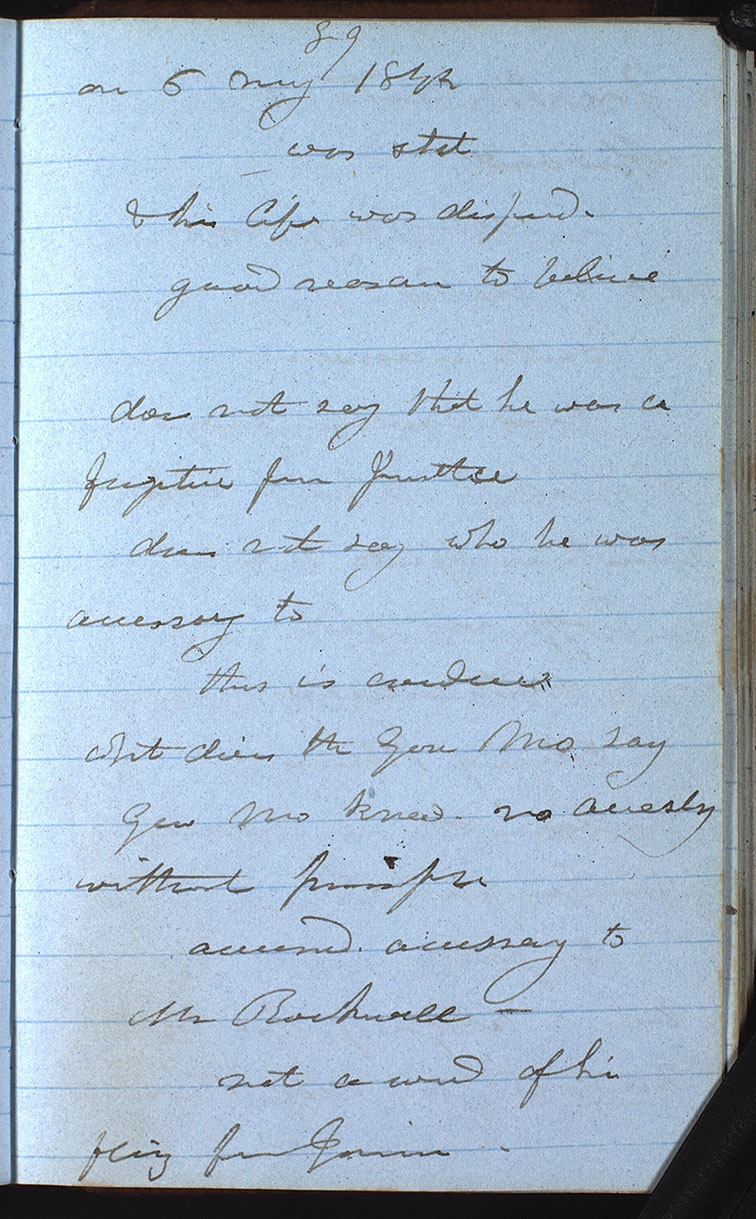 on 6 May 1842
was shot
& his life was dispaird.
good reason to believe
does not say that he was a
fugitive from Justice
does not say who he was
accessory to
this is
what does the Gov Mo say
Gov Mo knew. no accessory
without principle
accused. accessory to
Mr Rockwell —
not a word of his
from